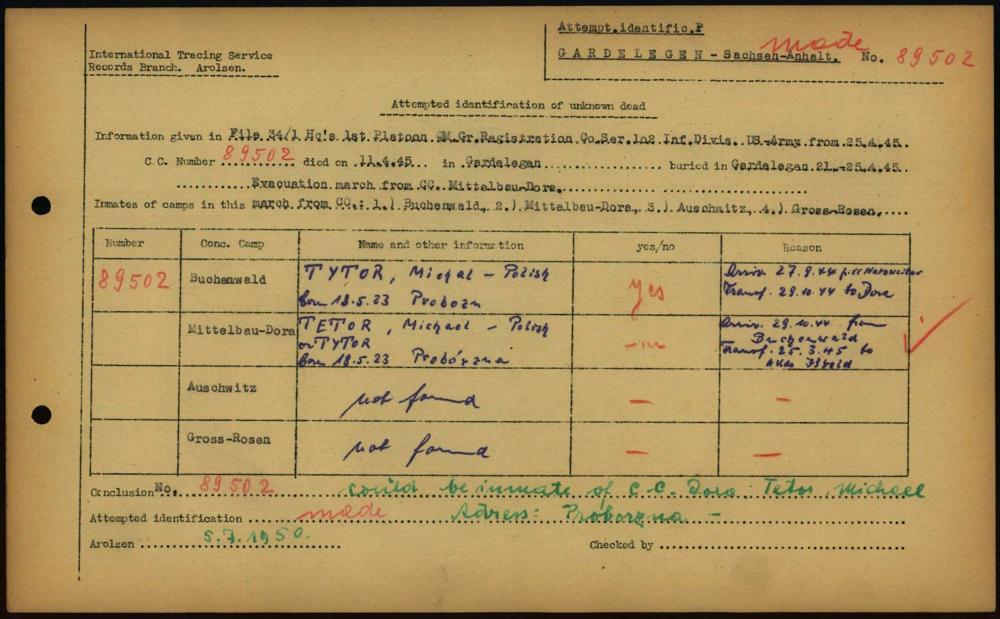 Attempt.identific.P
GARDELEGEN - Sachsen-Anhalt. made No. 89502
International Tracing Service
Records Branch. Arolsen.
Attempted identification of unknown dead
Information given in File 34/1 Hq's 1st.Platoon QM.Gr.Ragistration Co.Ser.102 Inf.Divis. US-Army from 25.4.45.
C.C. Number 89502 died on 11.4.45 in Gardelegen buried in Gardelegen 21.-25.4.45
Evacuation march from CC. Mittelbau-Dora.
Inmates of camps in this march from CC.: 1.) Buchenwald, 2.) Mittelbau-Dora, 3.) Auschwitz, 4.) Gross-Rosen.
Number Conc. Camp Name and other information yes/no Reason
89502 Buchenwald TYTOR, Michal - Polish yes Arriv. 27.9.44 f.
born 18.5.23 Probozn Transf. 29.10.44 to Dora
Mittelbau-Dora TETOR, Michael - Polish -"- Arriv. 29.10.44 from
or TYTOR Buchenwald
born 18.5.23 Probórzna Transf. 25.3.45 to
Auschwitz not found - -
Gross-Rosen not found - -
Conclusion No. 89502 could be inmate of C.C. Dora Tetor Michael
Attempted identification made Adress: Proborzna -
Arolsen 5.7.1950. Checked by